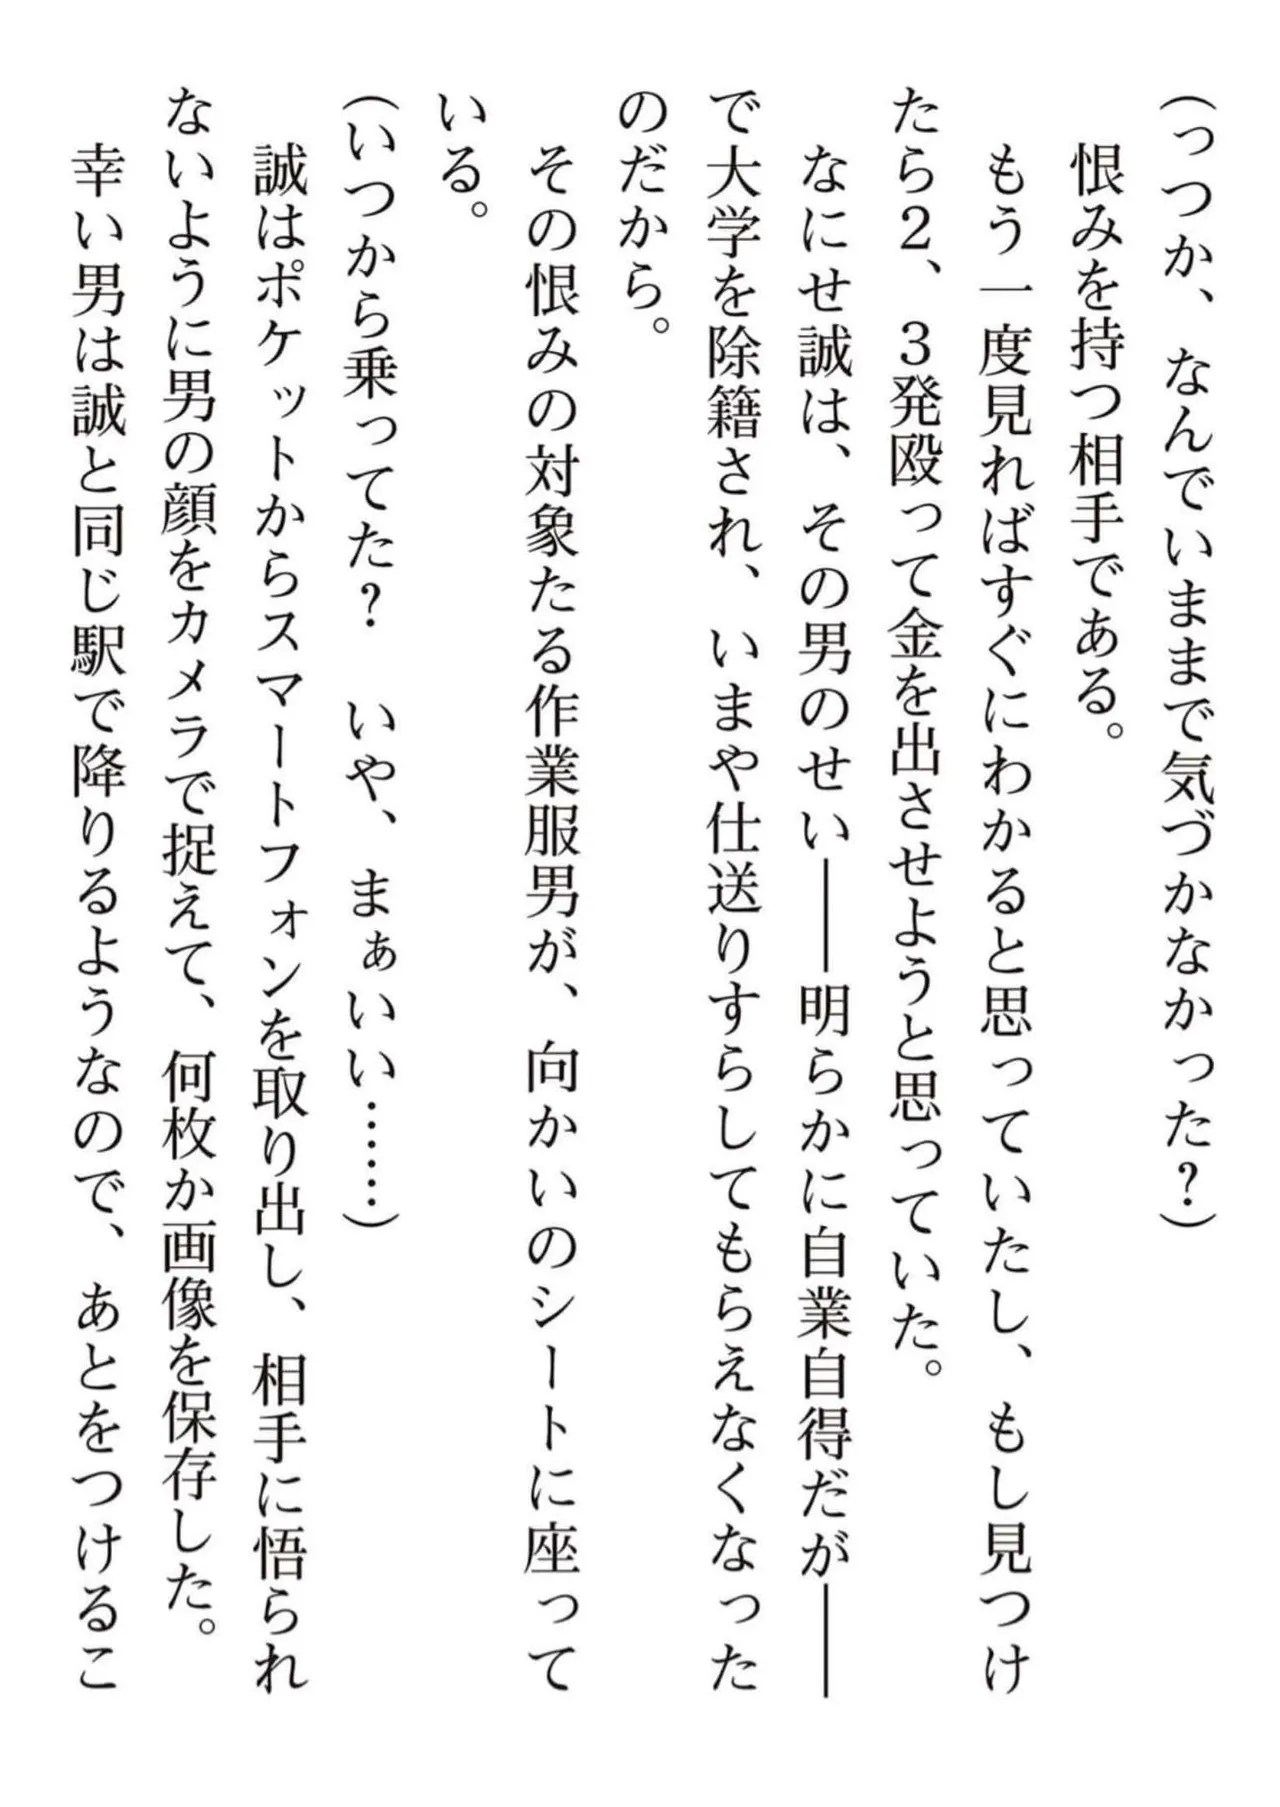 （っつか、なんでいままで気づかなかった？）
恨みを持つ相手である。
もう一度見ればすぐにわかると思っていたし、もし見つけ
たら２、３発殴って金を出させようと思っていた。
なにせ誠は、その男のせい――明らかに自業自得だが――
で大学を除籍され、いまや仕送りすらしてもらえなくなった
のだから。
その恨みの対象たる作業服男が、向かいのシートに座って
いる。
（いつから乗ってた？　いや、まぁいい……）
誠はポケットからスマートフォンを取り出し、相手に悟られ
ないように男の顔をカメラで捉えて、何枚か画像を保存した。
幸い男は誠と同じ駅で降りるようなので、あとをつけるこ